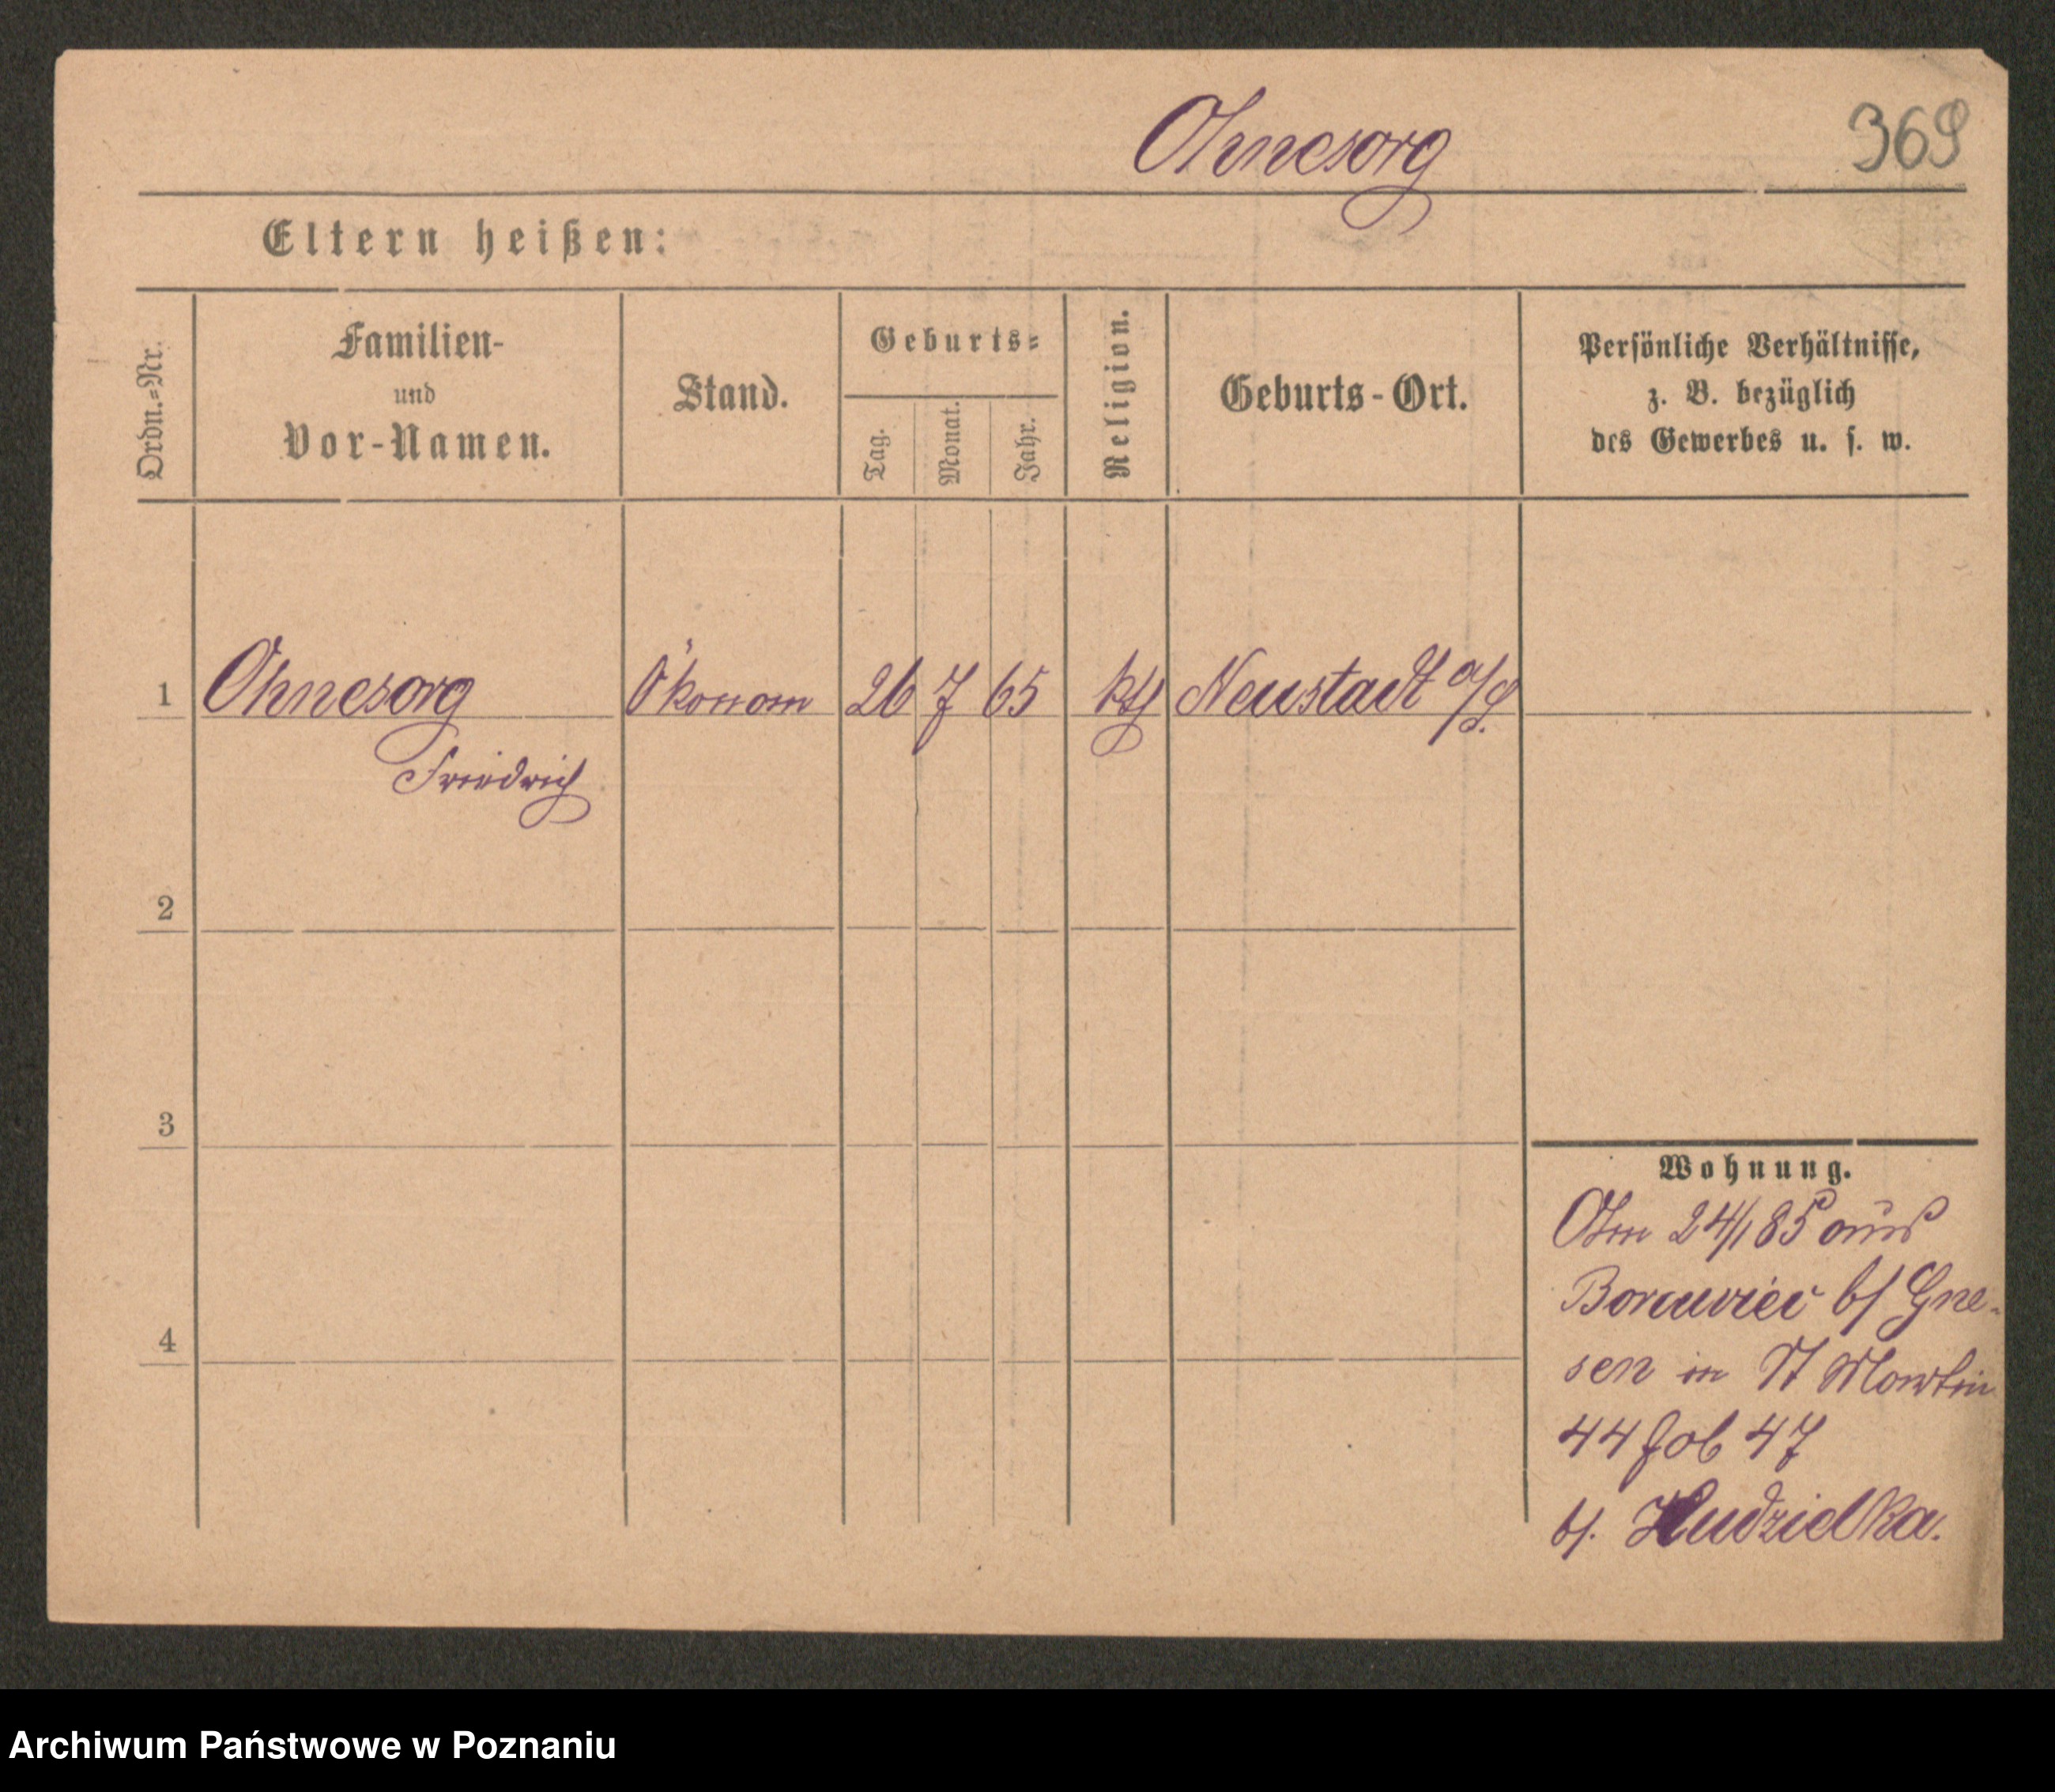 Ohnesorg
369
Eltern heißen:
Ordn.=Nr.
Familien-
und
Vor-Namen.
Stand.
Geburts=
Tag.
Monat.
Jahr.
Religion.
Geburts-Ort.
Persönliche Verhältnisse,
z. B. bezüglich
des Gewerbes u. s. w.
1 Ohnesorg Ökonom 26 7 65 kth Neustadt a/
Friedrich
2
3
4
Wohnung.
24/1 85 aus
b/ Gne-
sen in St Martin
44 47
b/. Hudzielka.
Archiwum Państwowe w Poznaniu